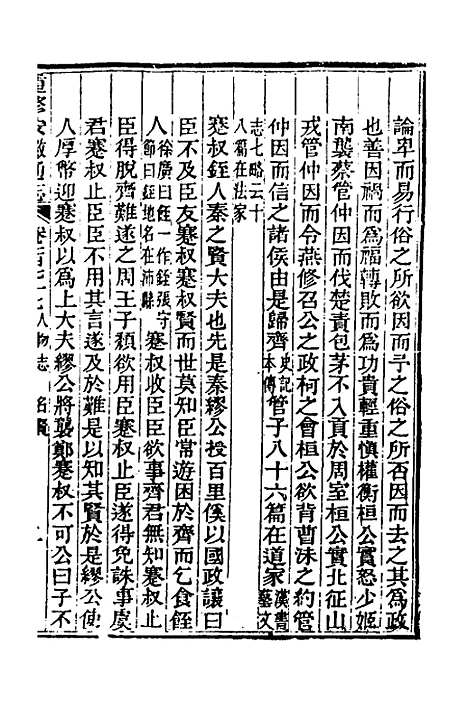 論卑而易行俗之所欲因而予之俗之所否因而去之其為政
也善因禍而為福轉敗而為功貴輕重慎權衡桓公實怒少姬
南襲蔡管仲因而伐楚責包茅不入貢於周室桓公實北征山
戎管仲因而令燕修召公之政柯之會桓公欲背曹沫之約管
仲因而信之諸侯由是歸齊史記本傳管子八十六篇在道家漢書藝文
志七略云十八篇在法家
蹇叔銍人秦之賢大夫也先是秦繆公授百里傒以國政讓曰
臣不及臣友蹇叔蹇叔賢而世莫知臣常遊困於齊而乞食銍
人徐廣曰銍一作銍張守節曰銍地名在沛縣蹇叔收臣臣欲事齊君無知蹇叔止
臣臣得脫齊難遂之周王子頹欲用臣蹇叔止臣臣遂得免誅事虞
君蹇叔止臣臣不用其言遂及於難是以知其賢於是繆公使
人厚幣迎蹇叔以為上大夫繆公將襲鄭蹇叔不可公曰子不
重修安徽通志 卷百七十七 人物志 名賢 二